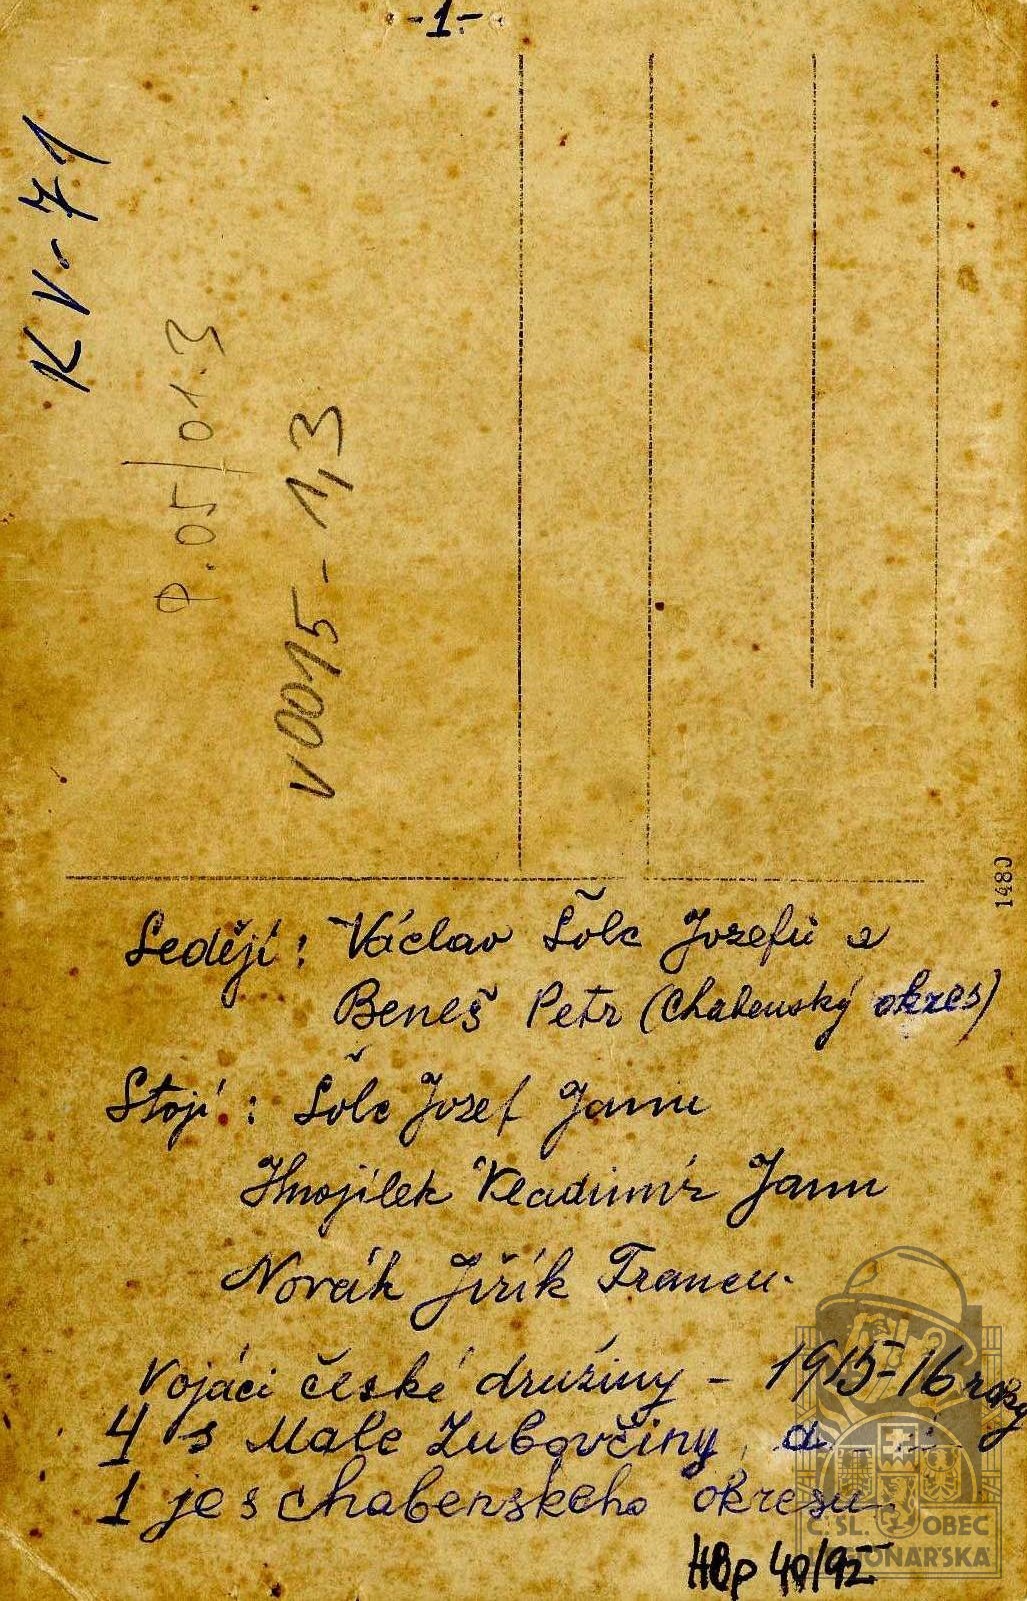 -1-
KV-71
P.05/013
V0015-1,3
1480
Sedějí: Václav Šolc Jozefů a
Beneš Petr (Chabenský okres)
Stojí: Šolc Jozef Janu
Hnojílek Vladimír Janu
Novák Jiřík Francu.
Vojáci české družiny - 1915-16 roky
4 s Malé Zubovčiny, a
1 je s chabenského okresu
HBp 40/92
Č. SL. OBEC
LEGIONÁŘSKÁ